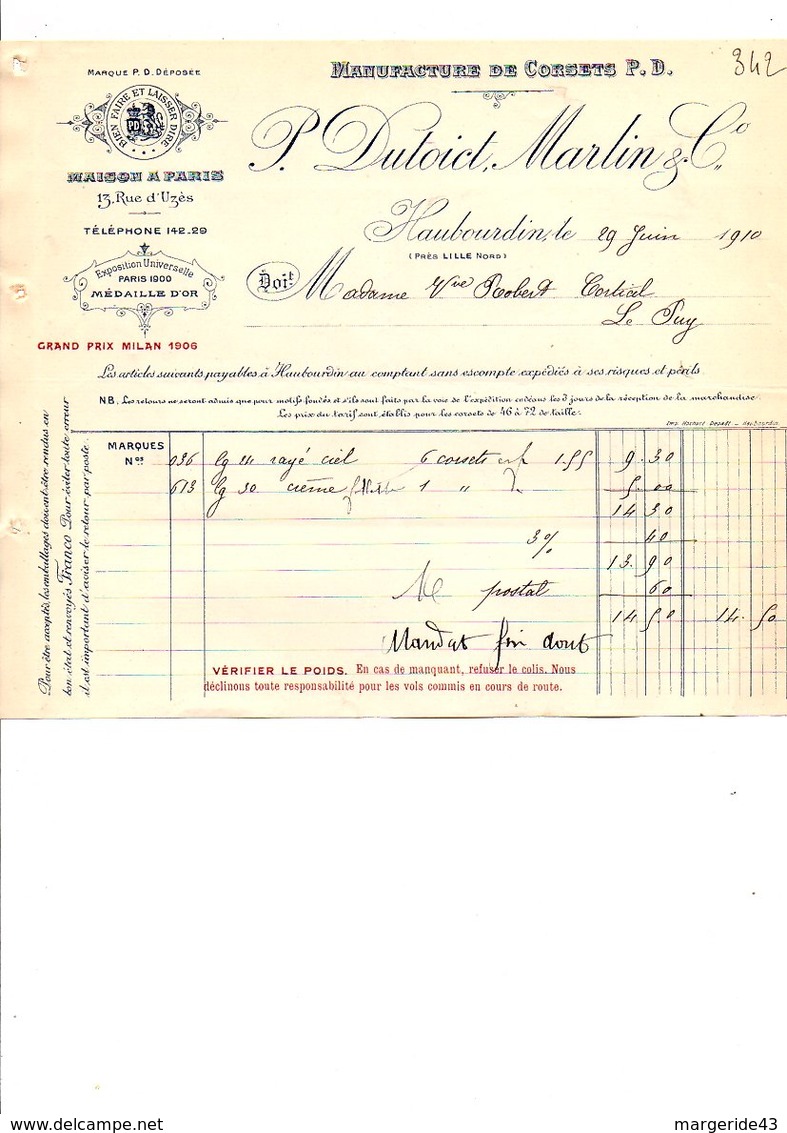 342
MARQUE P. D. DÉPOSÉE
BIEN FAIRE ET LAISSER DIRE
PD
MAISON A PARIS
13, Rue d'Uzès
TÉLÉPHONE 142.29
Exposition Universelle
PARIS 1900
MÉDAILLE D'OR
GRAND PRIX MILAN 1906
MANUFACTURE DE CORSETS P. D.
P. Dutoict, Martin & Co
Haubourdin, le 29 Juin 1910
(PRÈS LILLE NORD)
Doit Madame Vve Robert
Le Puy
Les articles suivants payables à Haubourdin au comptant sans escompte expédiés à ses risques et périls
NB. Les retours ne seront admis que pour motifs fondés et s'ils sont faits par la voie de l'expédition en dedans les 8 jours de la réception de la marchandise.
Les prix du tarif sont établis pour les corsets de 46 à 72 de taille.
Haubourdin
Pour être acceptés, les emballages doivent être rendus en
bon état et renvoyés Franco Pour éviter toute erreur
il est important d'aviser le retour par poste.
MARQUES
Nos
036 rayé ciel 6 corsets 1.55 9.30
613 crème 1 " 5.00
14 30
3% 40
13.90
postal 60
14 50 14.50
Mandat fin
VÉRIFIER LE POIDS. En cas de manquant, refuser le colis. Nous
déclinons toute responsabilité pour les vols commis en cours de route.
margeride43